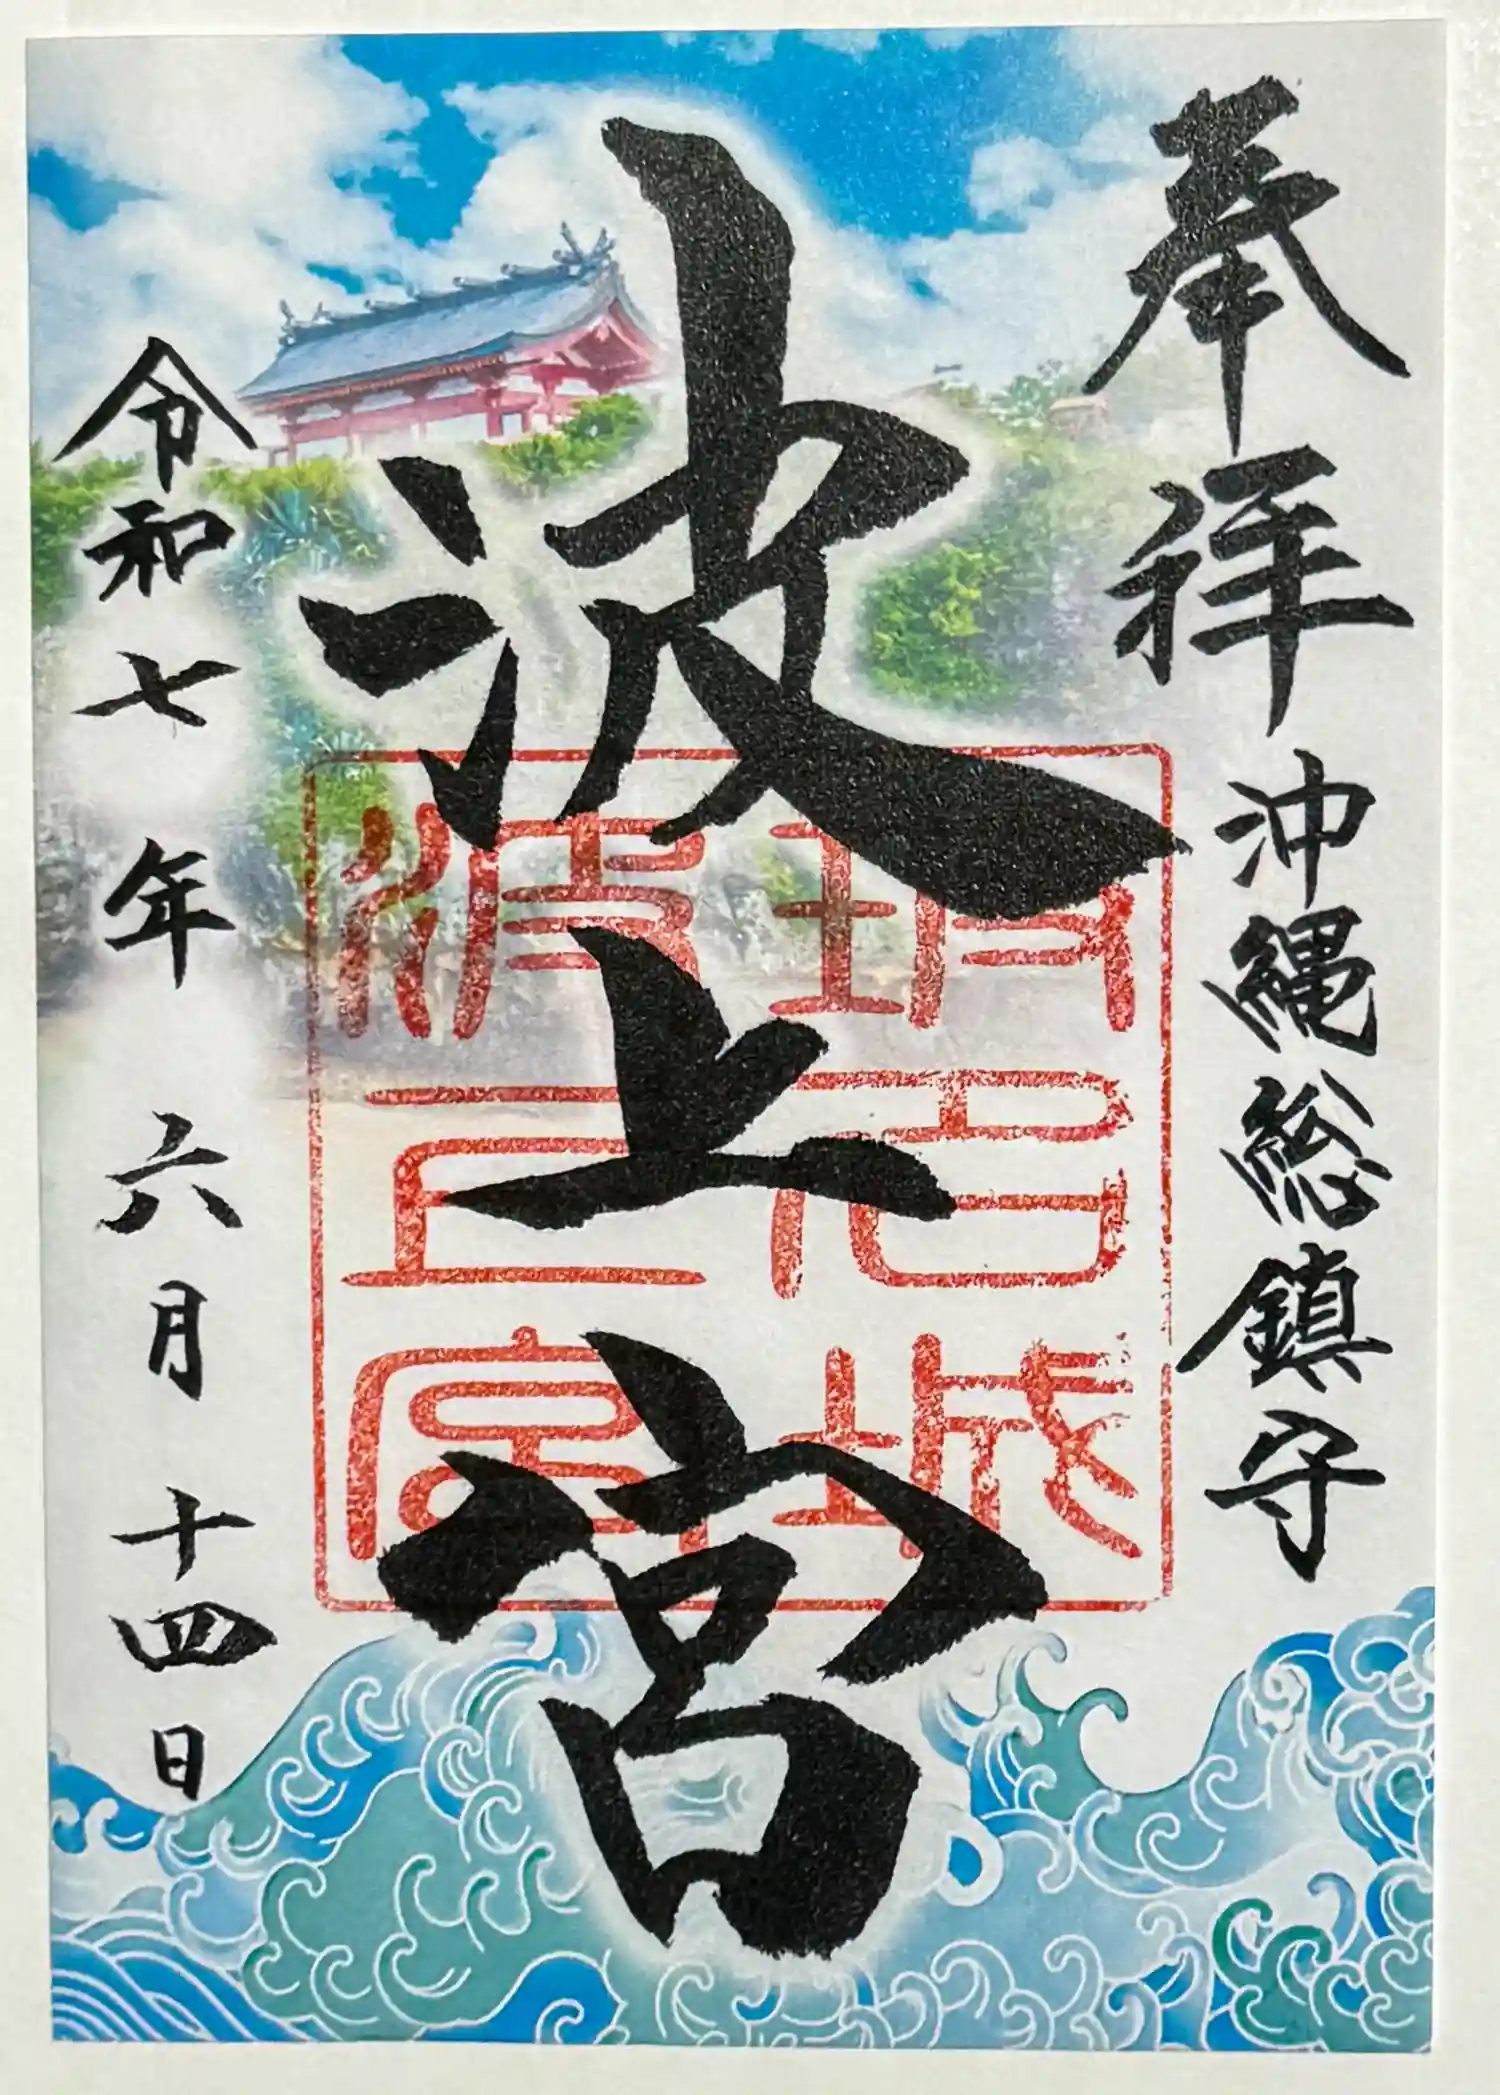 奉拝
沖縄総鎮守
波上宮
波上宮
令和七年六月十四日